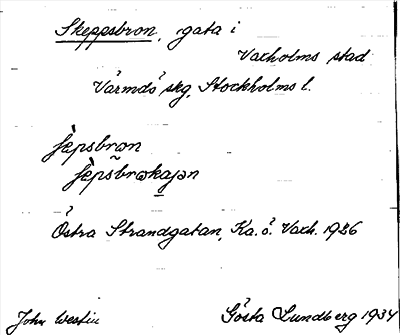 Skeppsbron, gata i
Vaxholms stad
Värmdö skg, Stockholms l.
ʃèpsbrən
ʃèpsbrəkajən
Östra Strandgatan, Ka. ö. Vaxh. 1926
John Westin
Gösta Lundberg 1934